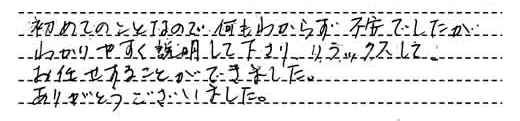 初めてのことなので何もわからず不安でしたが
わかりやすく説明して下さり、リラックスして、
お任せすることができました。
ありがとうございました。